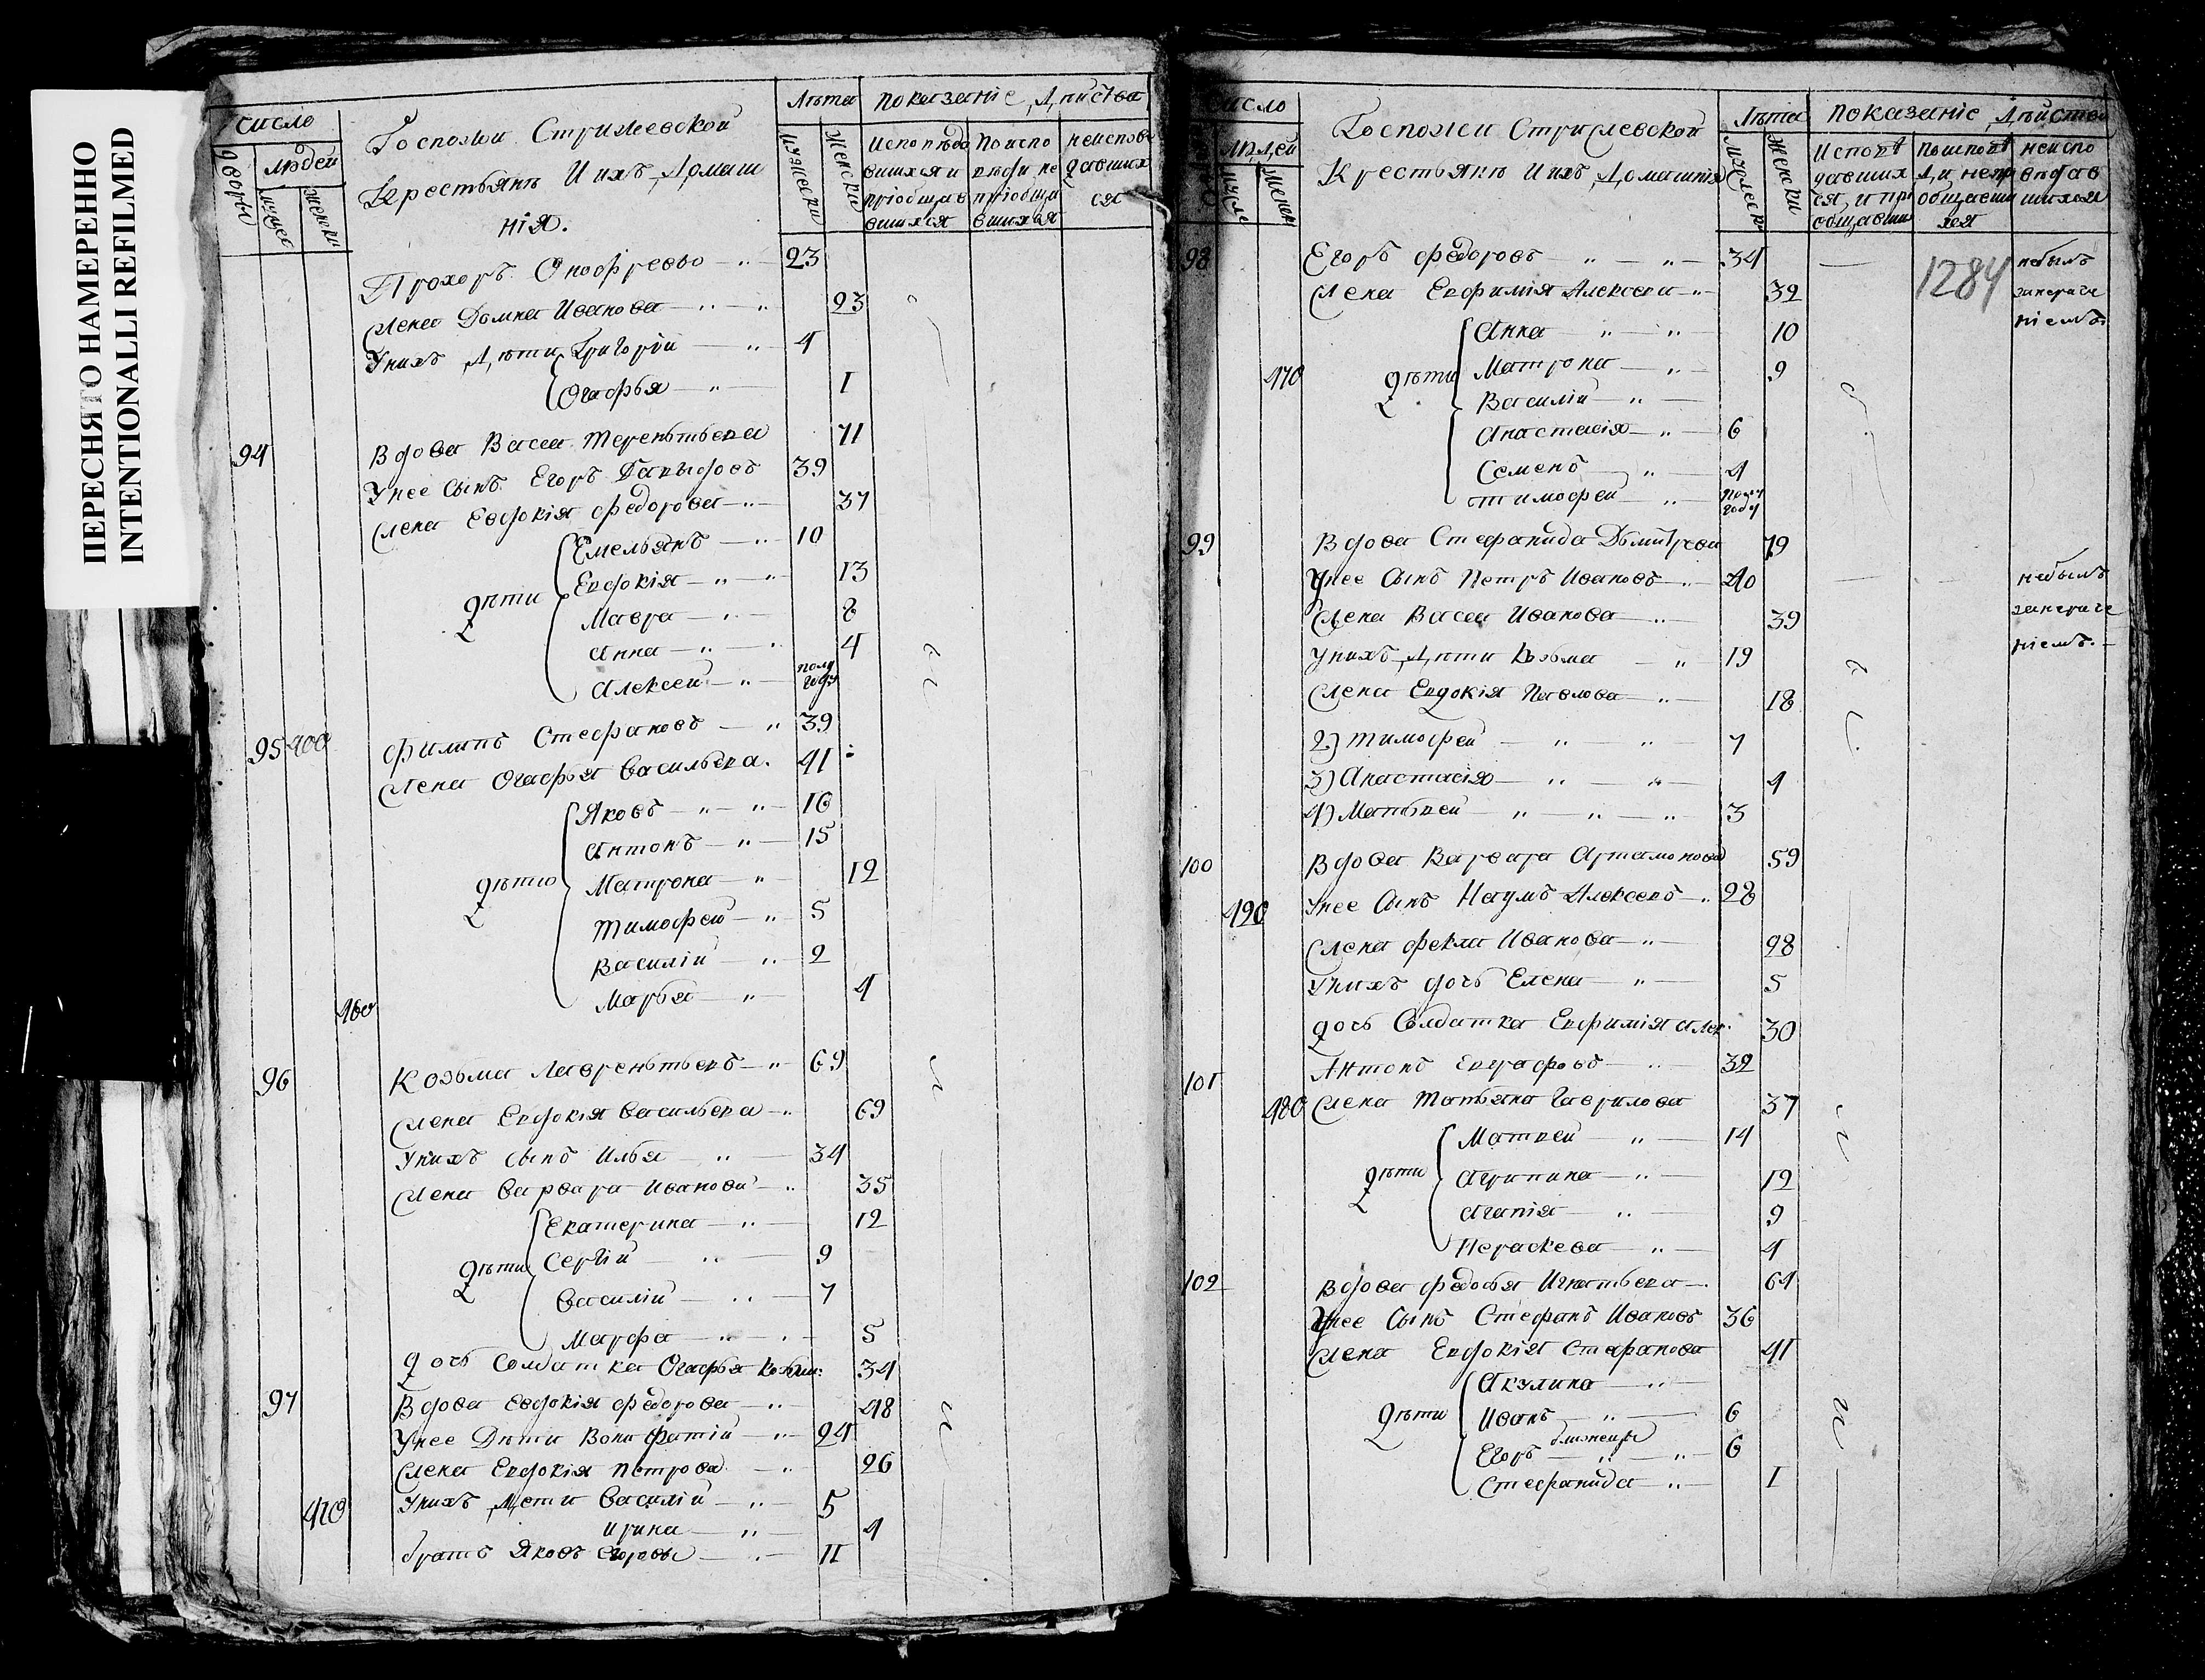 ПЕРЕСНЯТО НАМЕРЕННО
INTENTIONALLI REFILMED
число
людей
дворы
мужес
женски
Госпожи
Крестьянъ И ихъ Домаш
нія.
Лѣта
мужески
женски
показаніе Дѣйства
Исповѣда
вшихся и
пріобщав
шихся
По испо
вѣди не
пріобщи
вшихся
неиспове
давших
ся
Прохоръ 23
Жена Домна Иванова 23
Унихъ Дѣти Григорій 4
Огафья 1
94 Вдова Васса Терентьева 71
Унее Сынъ Егоръ Давыдовъ 39
Жена Евдокія Федорова 37
дѣти
Емельянъ 10
Евдокія 13
Мавра 8
Анна 4
Алексей полу году
95 400 Филипъ Стефановъ 39
Жена Огафья Васильева. 41
дѣти
Яковъ 16
Антонъ 15
Матрона 12
Тимофей 5
Василій 2
460 Марья 4
96 Козьма Лаврентьевъ 69
Жена Евдокія Васильева 69
Унихъ сынъ Илья 34
Жена Варвара Иванова 35
дѣти
Екатерина 12
Сергій 9
Василій 7
Марфа 5
дочь Солдатка Огафья Козьм: 34
97 Вдова Евдокія Федорова 48
Унее Дѣти Вонифатій 24
Жена Евдокія Петрова 26
410 Унихъ Дети Василій 5
Ирина 4
братъ Яковъ Егоровъ 11
число
людей
мужс
женск
Госпожи
Крестьянъ И ихъ Домашнія
Лѣта
мужески
женски
показаніе Дѣйства
Исповѣ
давших
ся, и при
общавши
По исповѣ
ди непр
общавши
хся
неиспо
вѣдав
шихся
98 Егоръ Федоровъ 34 1284 небылъ
Жена Евфимія Алексеева 32 занераче
ніемъ
дѣти
Анна 10
470 Матрона 9
Василій
Анастасія 6
Семенъ 4
Тимофей полу году
99 Вдова Стефанида Дымитрева 79
Унее Сынъ Петръ Ивановъ 40 небылъ
Жена Васса Иванова 39 занераче
Унихъ Дѣти Козьма 19 ніемъ.
Жена Евдокія Павлова 18
2) Тимофей 7
3) Анастасія 4
4) Матвей 3
100 Вдова Варвара Артамонова 59
420 Унее Сынъ Наумъ Алексевъ 28
Жена Фекла Иванова 28
Унихъ дочь Елена 5
дочь Солдатка Евфимія Алек. 30
101 Антонъ Евграфовъ 32
480 Жена Татьяна Гаврилова 37
дѣти
Матвей 14
Агрипина 12
Агапія 9
Параскева 4
102 Вдова Федосья Игнатьева 64
Унее Сынъ Стефанъ Ивановъ 36
Жена Евдокія Стефанова 41
дѣти
Акулина
Иванъ 6
близнецы
Егоръ 6
Стефанида 1